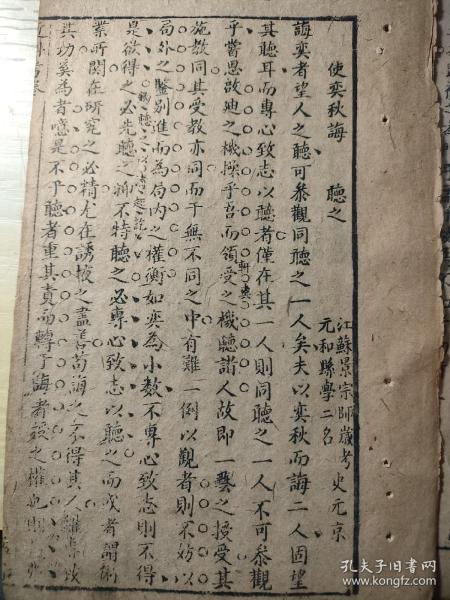 使奕秋誨　聽之
江蘇景宗師歲考史元
元和縣學二名
誨奕者望人之聽可恭觀同聽之一人矣夫以奕秋而誨二人固望
其聽耳而專心致志以聽者僅在其一人則同聽之一人不可恭觀
乎嘗思啟迪之機操乎吾而領受之機聽諸人故即一藝之授受其
施教同其受教亦同而于無不同之中有難一例以觀者則不妨以
局外之鑒別進而為局內之權衡如奕為小數不專心致志則不得
是欲得之必先聽之將不特聽之必專心致志以聽之而或者謂術
業所關在研究之必精尤在誘掖之盡善苟誨之不得其人雖專致
其功奚為者噫是不于聽者重其責而轉于誨者授之權也
孔夫子旧书网